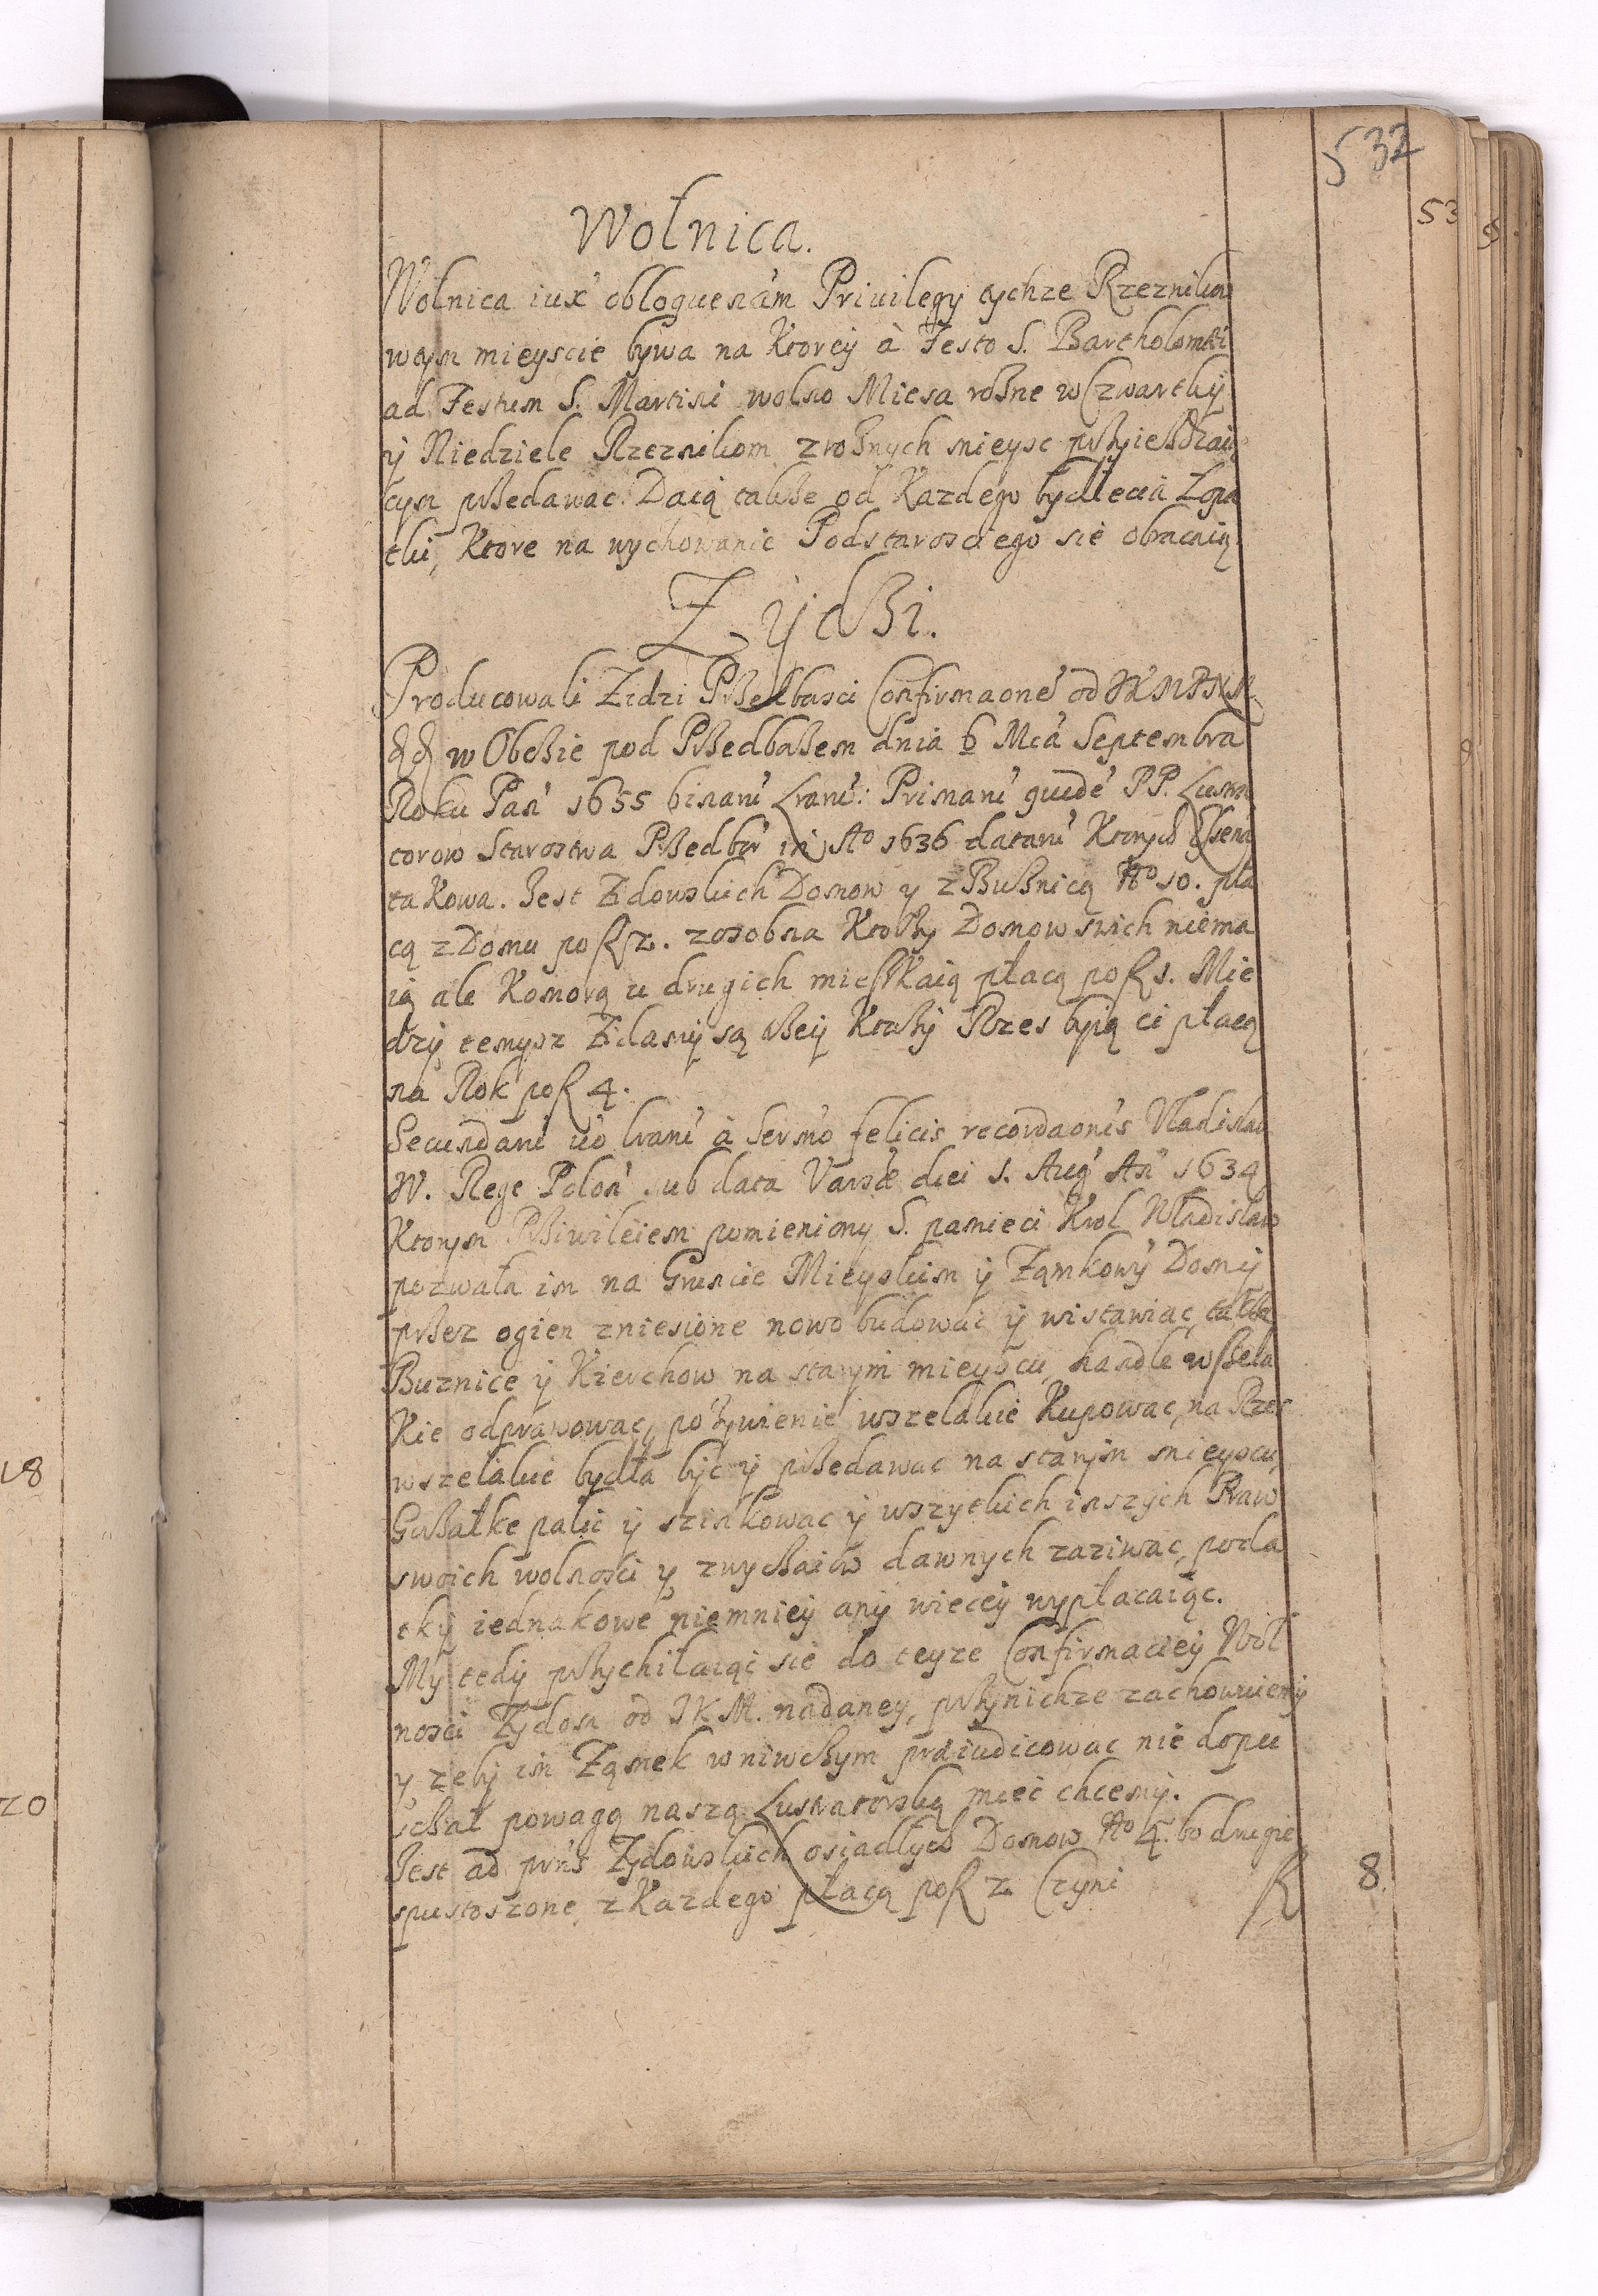 532
53
Wolnica.
Wolnica iux obloquenām Privilegy tychze Rzeznikow
wtym mieyscie bywa na Ktorey à Festo S. Bartholomei
ad Festum S. Martini wolno Miesa rożne w Czwartky
ÿ Niedziele Rzeznikom z rożnych mieysc przyieżdzaią
cym przedawac. Daią także od Kazdego bydlecia Łopa
tki, Ktore na wychowanie Podstarosciego sie obracaią.
Zÿdzi.
Producowali Zidzi Przedbasci Confirmaone od
w Obozie pod Przedbożem dnia 6 Mca Septembra
Roku Pań 1655 binarū Lrarū: Primarū quidē PP. Lustra
torow Starostwa Przedbū in Ao 1636 datarū Ktorych
takowa. Jest Zidowskich Domow y z Bużnicą No 10. pła
cą z Domu po f 2. zosobna Ktorzy Domow swich niema
ią ale Komorą u drugich mieszkaią płacą po f 1. Mie
dzÿ temysz Zidamÿ są Ktorzÿ Rzes bÿią ci płacą
na Rok po f 4.
Secundarū uō lrarū à Sermō felicis recordaonis Vladislao
IV. Rege Polon̄ sub data Varsæ diei 1. Aug An 1634
Ktorym Przivileiem pomieniony S. pamieci Krol Wladislaw
pozwala im na Gruncie Mieyskim ÿ Ząmkowÿ Domÿ
przez ogien zniesione nowo budowac ÿ wistawiac, także
Buznice ÿ Kierchow na starym mieyscu, handle wszela
Kie odprawowac, pożywienie wszelakie Kupowac, na Rzes
wszelakie bydła bÿc ÿ przedawac na starÿm mieyscu,
Gorzałke palic ÿ szinkowac ÿ wszytkich inszych Praw
swoich wolnosci y zwyczaiow dawnych zaziwac, poda
tkÿ iednakowe niemnieÿ anÿ wieceÿ wypłacaiąc.
My tedÿ przychilaiąc sie do teyze Confirmacieÿ Wol
nosci Zydom od JKM. nadaney, przynichze zachowuiemÿ
y zeby im Ząmek w niwczym præiudicowac nie dopu
sczał powagą naszą Lustratorską miec chcemÿ.
Jest ad prn̄s Zydowskich osiadłych Domow No 4. bo drugie
spustoszone, z Kazdego płacą po f 2. Czyni f 8.
18
20